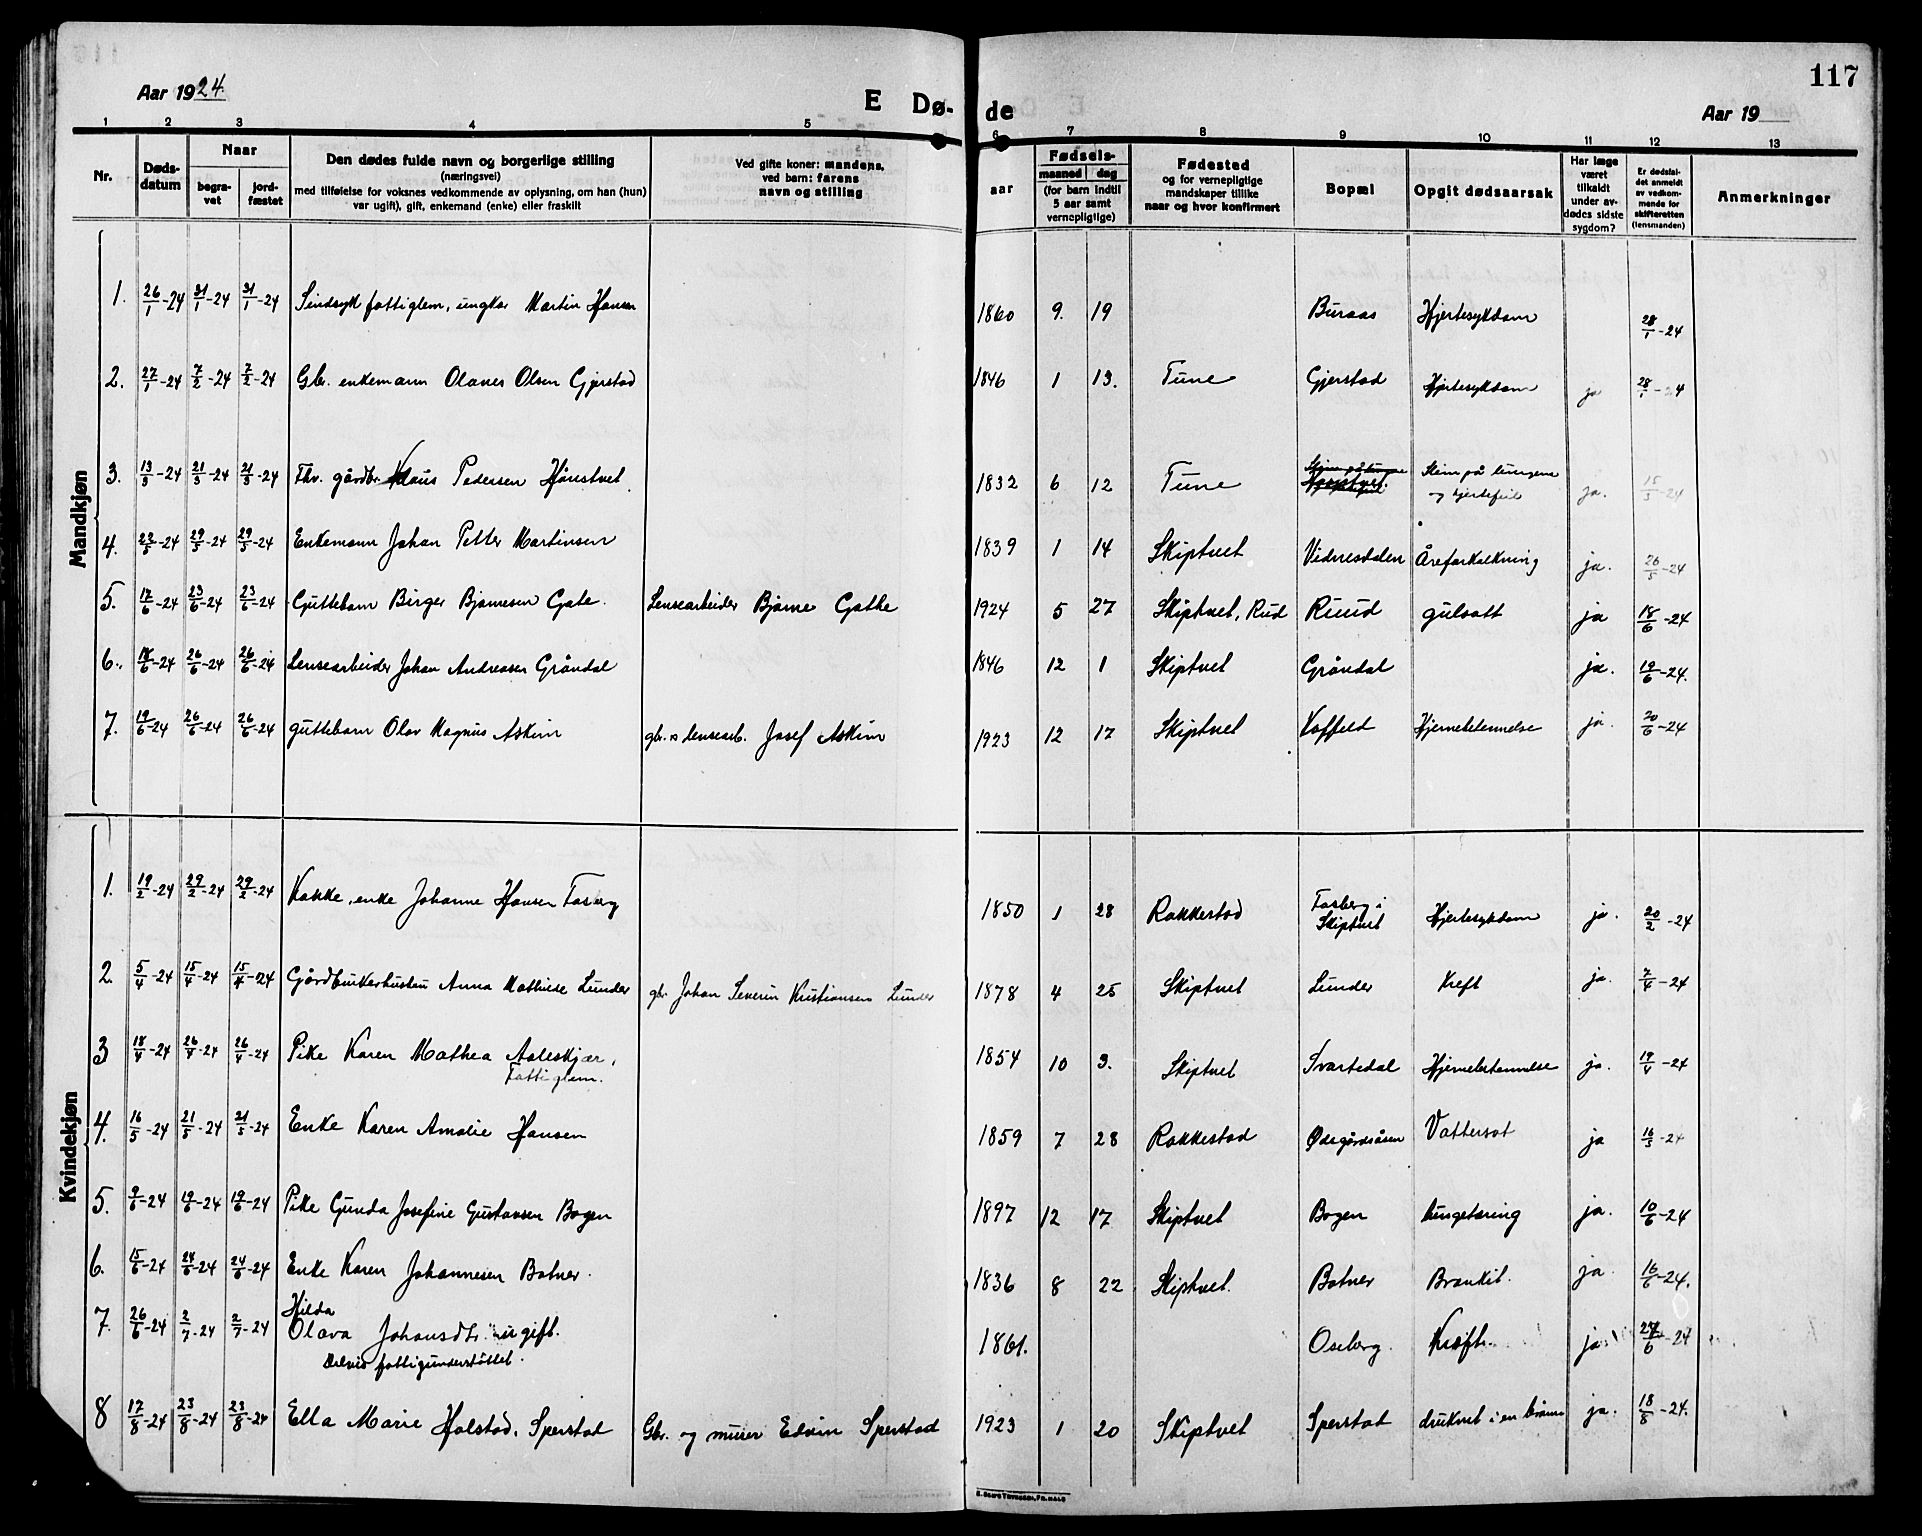 117
Aar 1924.
E Dø- de
Aar 19
1 2 3 4 5 6 7 8 9 10 11 12 13
Nr.
Døds-
datum
Naar
begra-
vet
jord-
fæstet
Den dødes fulde navn og borgerlige stilling
(næringsvei)
med tilføielse for voksnes vedkommende av oplysning, om han (hun)
var ugift), gift, enkemand (enke) eller fraskilt
Ved gifte koner: mandens,
ved barn: farens
navn og stilling
aar
Fødsels-
maaned dag
(for barn indtil
5 aar samt
vernepligtige)
Fødested
og for vernepligtige
mandskaper tillike
naar og hvor konfirmert
Bopæl
Opgit dødsaarsak
Har læge
været
tilkaldt
under av-
dødes sidste
sygdom?
Er dødsfal-
det anmeldt
av vedkom-
mende for
skifteretten
(lensmanden)
Anmerkninger
Mandkjøn
1. 26/1-24 31/1-24 31/1-24 Sindsyk fattiglem, ungkar Martin Hansen 1860 9. 19 Buraas Hjertesykdom 28/1-24
2. 27/1-24 7/2-24 7/2-24 Gbr. enkemann Olaves Olsen Gjerstad 1846 1 13. Tune Gjerstad Hjertesykdom ja 28/1-24
3. 13/3-24 21/3-24 21/3-24 Fhv. gårdbr. Klaus Pedersen Hånstvet 1832 6 12 Tune Slim på lungene
og hjertefeil ja. 15/3-24
4. 22/5-24 29/5-24 29/5-24 Enkemann Johan Petter Martinsen 1839 1 14 Skiptvet Vidnesdalen Åreforkalkning ja. 26/5-24
5. 17/6-24 23/6-24 23/6-24 Guttebarn Birger Bjarnesen Gate. Lensearbeider Bjarne Gathe 1924 5 27 Skiptvet, Rud Ruud gulsott ja 18/6-24
6. 18/6-24 26/6-24 26/6-24 Lensearbeider Johan Andreasen Gråndal 1846 12 1 Skiptvet Gråndal ja. 19/6-24.
7. 19/6-24 26/6-24 26/6-24 guttebarn Olav Magnus Askim gbr. og lensearb. Josef Askim 1923 12 17 Skiptvet Koffeld Hjernebetennelse ja. 20/6-24
Kvindekjøn
1. 19/2-24 29/2-24 29/2-24 Kokke, enke Johanne Hansen Fosberg 1850 1 28 Rakkestad Fosberg i
Skiptvet Hjertesykdom ja. 20/2-24
2. 5/4-24 15/4-24 15/4-24 Gårdbrukerhustru Anna Mathilde Lunder gbr. Johan Severin Kristiansen Lunder 1878 4 25 Skiptvet Lunder Kreft ja. 7/4-24
3 18/4-24 26/4-24 26/4-24 Pike Karen Mathea Asleskjær,
Fattiglem. 1854 10 3. Skiptvet Svartedal Hjernebetennelse ja. 19/4-24
4. 16/5-24 21/5-24 21/5-24 Enke Karen Amalie Hansen 1859 7 28 Rakkestad Ødegårdsåsen Vattersot ja 16/5-24
5. 9/6-24 19/6-24 19/6-24 Pike Gunda Josefine Gustavsen Bogen 1897 12 17 Skiptvet Bogen lungetæring ja. 10/6-24
6. 15/6-24 24/6-24 24/6-24 Enke Karen Johannesen Botner. 1836 8 22 Skiptvet. Botner Bronkit. ja. 16/6-24.
7. 26/6-24 2/7-24 2/7-24 Hilda
Olava Johansdtr. ugift.
delvis fattigunderstöttet. 1861. Oseberg. Kræft. ja 27/6-24
8 17/8-24 23/8-24 23/8-24 Ella Marie Holstad, Sperstad Gbr. og murer Edvin Sperstad 1923 1 20 Skiptvet Sperstad druknet i en brønn ja. 18/8-24.